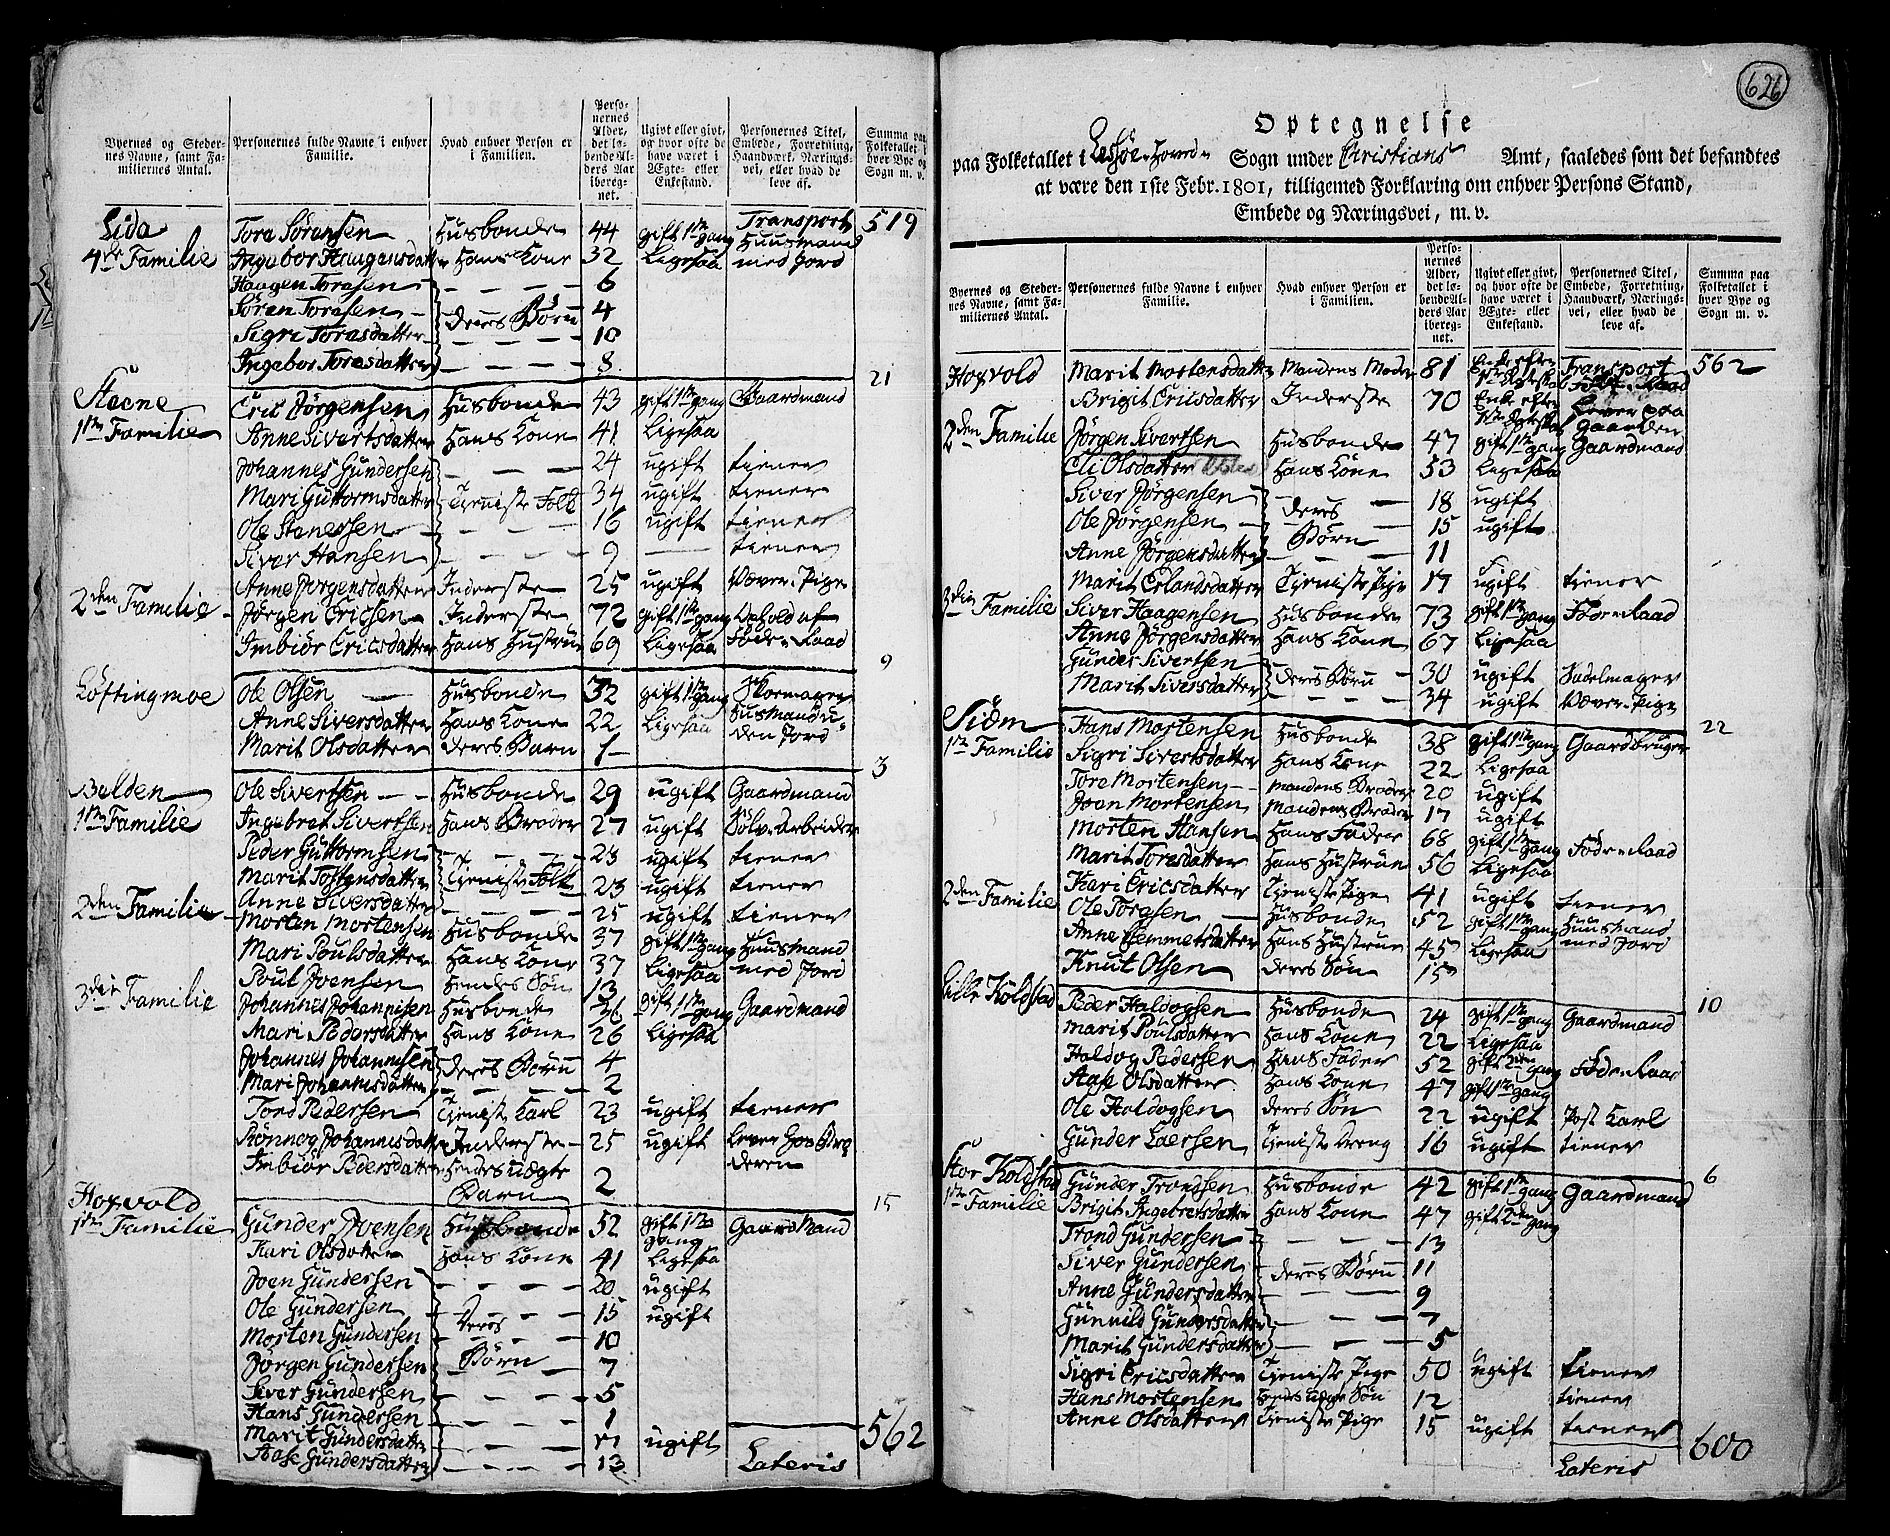 Byernes og Stedernes Navne, samt Familiernes Antal.
Personernes fulde Navne i enhver Familie.
Hvad enhver Person er i Familien.
Personernes Alder, det løbende Alders Aar iberegnet.
Ugivt eller givt, og hvor ofte de have været i Ægte- eller Enkestand.
Personernes Titel, Embede, Forretning, Haandværk, Næringsvei, eller hvad de leve af.
Summa paa Folketallet i hver Bye og Sogn m. v.
Lida Tora Sörensen Husbonde 44 gift 1ste gang Transport 519
4de Familie Ingebor Haagensdatter Hans Kone 32 Ligesaa Huusmand med Jord
Haagen Torasen 6
Sören Torasen deres Börn 4
Sigri Torasdatter 10
Ingebor Torasdatter 8
21
Steene Eric Jörgensen Husbonde 43 gift 1ste gang Gaardmand
1ste Familie Anne Sivertsdatter Hans Kone 41 Ligesaa
Johannes Gundersen 24 ugift tiener
Mari Guttormsdatter Tjeniste Folk 34 ugift tiener
Ole Stenersen 16 ugift tiener
Siver Hansen 9 tiener
Anne Jörgensdatter Inderste 25 ugift Væver Pige
2den Familie Jörgen Ericsen Inderste 72 gift 1ste gang Ophold af
Imbiör Ericsdatter Hans Hustrue 69 Ligesaa Föde Raad
9
Löftingmoe Ole Olsen Husbonde 32 gift 1ste gang Skomager
Anne Siversdatter Hans Kone 22 Ligesaa Husmand u-
Marit Olsdatter deres Barn 1 den Jord
3
Belden Ole Sivertsen Husbonde 29 ugift Gaardmand
1ste Familie Ingebret Sivertsen Hans Broder 27 ugift Sölvarbeider
Peder Guttormsen 23 ugift tiener
Marit Tostensdatter Tjeniste Folk 23 ugift tiener
Anne Siversdatter 25 ugift tiener
2den Familie Morten Mortensen Husbonde 37 gift 1ste gang Huusmand
Mari Poulsdatter Hans Kone 37 Ligesaa med Jord
Poul Joensen Hendes Sön 13
3die Familie Johannes Johannisen Husbonde 36 gift 1ste gang Gaardmand
Mari Pedersdatter Hans Kone 26 Ligesaa
Johannes Johannisen deres Börn 4
Mari Johannisdatter 2
Tord Pedersen Tjeniste Karl 23 ugift tiener
Rönnog Johannisdatter Inderste 25 ugift Lever hos Bro
Imbiör Pedersdatter Hendes uægte Barn 2 deren
15
Hoxvold Gunder Joensen Husbonde 52 gift 1ste gang GaardMand
1ste Familie Kari Olsdatter Hans Kone 41 Ligesaa
Joen Gundersen 20 ugift
Ole Gundersen Deres 15 ugift
Morten Gundersen 10
Jörgen Gundersen Börn 7
Siver Gundersen 5
Hans Gundersen 1
Marit Gundersdatter ugift
Aase Gundersdatter 13
Lateris 562
626
Optegnelse
paa Folketallet i Lessöe Hoved Sogn under Christians Amt, saaledes som det befandtes
at være den 1ste Febr. 1801, tilligemed Forklaring om enhver Persons Stand,
Embede og Næringsvei, m. v.
Byernes og Stedernes Navne, samt Familiernes Antal.
Personernes fulde Navne i enhver Familie.
Hvad enhver Person er i Familien.
Personernes Alder, det løbende Alders Aar iberegnet.
Ugivt eller givt, og hvor ofte de have været i Ægte- eller Enkestand.
Personernes Titel, Embede, Forretning, Haandværk, Næringsvei, eller hvad de leve af.
Summa paa Folketallet i hver Bye og Sogn m. v.
Hoxvold Marit Mortensdatter Mandens Moder 81 Enke efter 1ste Transport 562
Föde Raad
Brigit Ericsdatter Inderste 70 Enke efter 1ste Lever paa Gaarden
2den Familie Jörgen Sivertsen Husbonde 47 gift 1ste gang Gaardmand
Eli Olsdatter Hans Kone 53 Ligesaa
Siver Jörgensen deres 18 ugift
Ole Jörgensen 15 ugift
Anne Jörgensdatter Börn 11
Marit Erlandsdatter Tjeniste Pige 17 ugift tiener
3die Familie Siver Haagensen Husbonde 73 gift 1ste gang Föde Raad
Anne Jörgensdatter Hans Kone 67 Ligesaa
Gunder Sivertsen deres Börn 30 ugift Sadelmager
Marit Siversdatter 34 ugift Væver Pige
22
Siöm Hans Mortensen Husbonde 38 gift 1ste gang Gaardbruger
1ste Familie Sigri Sivertsdatter Hans Kone 22 Ligesaa
Tore Mortensen Mandens Broder 20 ugift
Joen Mortensen Mandens Broder 17 ugift
Morten Hansen Hans Fader 68 gift 1ste gang Föde Raad
Marit Toresdatter Hans Hustrue 56 Ligesaa
Kari Ericsdatter Tjeniste Pige 41 ugift tiener
2den Familie Ole Toresen Husbonde 52 gift 1ste gang Huusmand
Anne Jemmetsdatter Hans Hustrue 45 Ligesaa med Jord
Knut Olsen deres Sön 15
10
Lille Koldstad Peder Haldogsen Husbonde 24 gift 1ste gang Gaardmand
Marit Poulsdatter Hans Kone 22 Ligesaa
Haldog Pedersen Hans Fader 52 gift 2den gang Föde Raad
Aase Olsdatter Hans Kone 47 gift 1ste gang
Ole Haldogsen deres Sön 22 ugift Post Karl
Gunder Laersen Tjeniste Dreng 16 ugift tiener
6
Stor Koldstad Gunder Trondsen Husbonde 42 gift 1ste gang Gaardmand
1ste Familie Brigit Ingebretsdatter Hans Kone 47 gift 2den gang
Trond Gundersen 13
Siver Gundersen deres Börn 11
Anne Gundersdatter 9
Gunnild Gundersdatter 7
Marit Gundersdatter 5
Sigri Ericsdatter Tjeniste Pige 50 ugift tiener
Hans Mortensen Hendes uægte Sön 12 tiener
Anne Olsdatter Tjeniste Pige 15 ugift tiener
Lateris 600